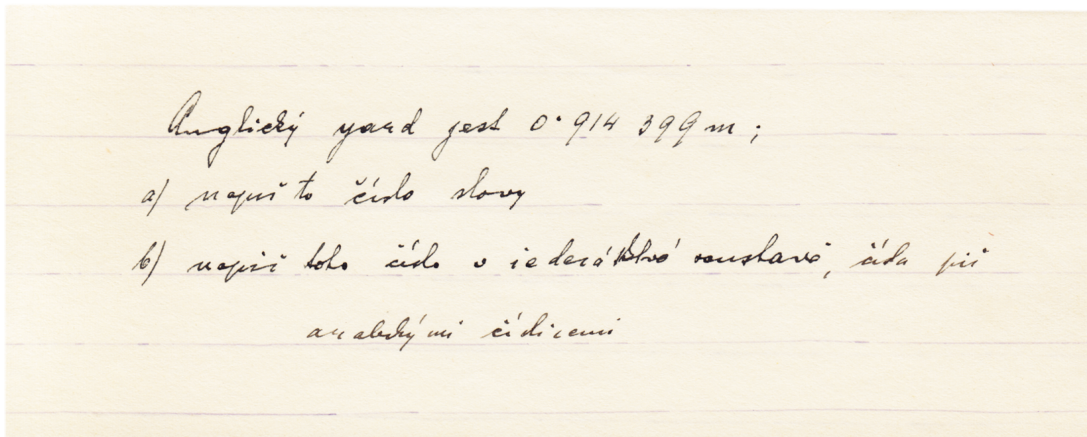 Anglický yard jest 0·914 399 m;
a) napiš to číslo slovy
b) napiš toto číslo v soustavě, čísla piš
arabskými číslicemi